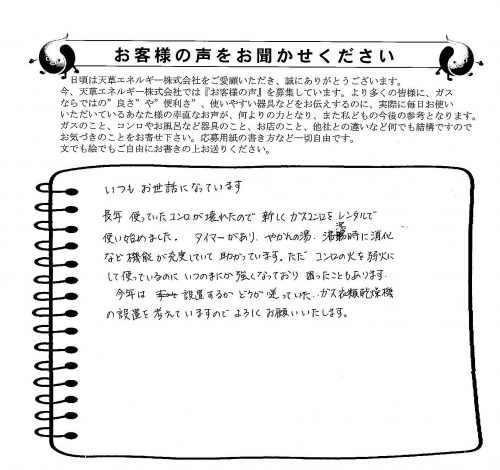 お客様の声をお聞かせください
日頃は天草エネルギー株式会社をご愛顧いただき、誠にありがとうございます。
今、天草エネルギー株式会社では『お客様の声』を募集しています。より多くの皆様に、ガス
ならではの”良さ”や”便利さ”、使いやすい器具などをお伝えするのに、実際に毎日お使い
いただいているあなた様の率直なお声が、何よりの力となり、また私どもの今後の参考となります。
ガスのこと、コンロやお風呂など器具のこと、お店のこと、他社との違いなど何でも結構ですので
お気づきのことをお寄せ下さい。応募用紙の書き方など一切自由です。
文でも絵でもご自由にお書きの上お送りください。
いつも お世話になっています
長年 使っていたコンロが壊れたので 新しくガスコンロを レンタルで
使い始めました。 タイマーがあり、やかんの湯 沸騰時に消化
など 機能が充実していて 助かっています。ただ コンロの火を弱火に
して使っているのに いつのまにか強くなっており 困ったこともあります。
今年は 設置するか どうか迷っていた、ガス衣類乾燥機
の設置を考えていますので よろしくお願いいたします。